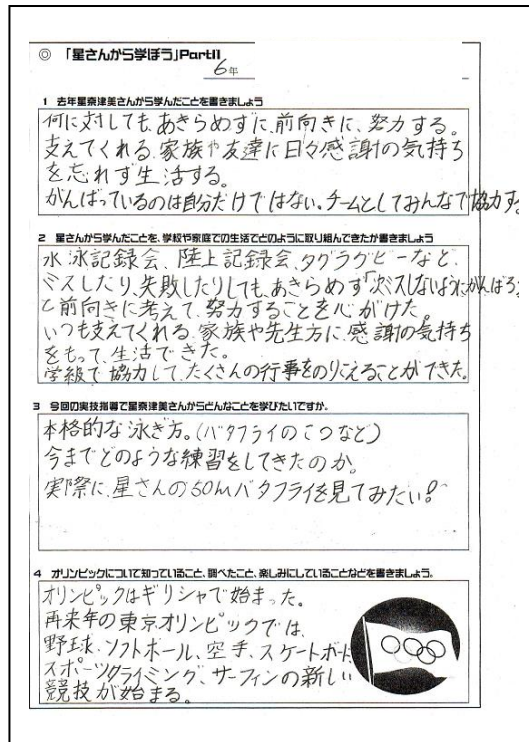 ◎ 「星さんから学ぼう」PartII
6年
1 去年星奈津美さんから学んだことを書きましょう
何に対しても、あきらめずに、前向きに、努力する。
支えてくれる、家族や友達に日々感謝の気持ち
を忘れず生活する。
がんばっているのは自分だけではない。チームとしてみんなで協力する
2 星さんから学んだことを、学校や家庭での生活でどのように取り組んできたか書きましょう
水泳記録会、陸上記録会、タグラグビーなど、
ミスしたり、失敗したりしても、あきらめず「次ミスしないようにがんばろう」
と前向きに考えて、努力することを心がけた。
いつも支えてくれる、家族や先生方に、感謝の気持ち
をもって、生活できた。
学級で協力して、たくさんの行事をのりこえることができた。
3 今回の実技指導で星奈津美さんからどんなことを学びたいですか。
本格的な泳ぎ方。(バタフライのこつなど)
今までどのような練習をしてきたのか。
実際に、星さんの50mバタフライを見てみたい!
4 オリンピックについて知っていること、調べたこと、楽しみにしていることなどを書きましょう。
オリンピックはギリシャで始まった。
再来年の東京オリンピックでは、
野球、ソフトボール、空手、スケートボード、
スポーツクライミング、サーフィンの新しい
競技が始まる。